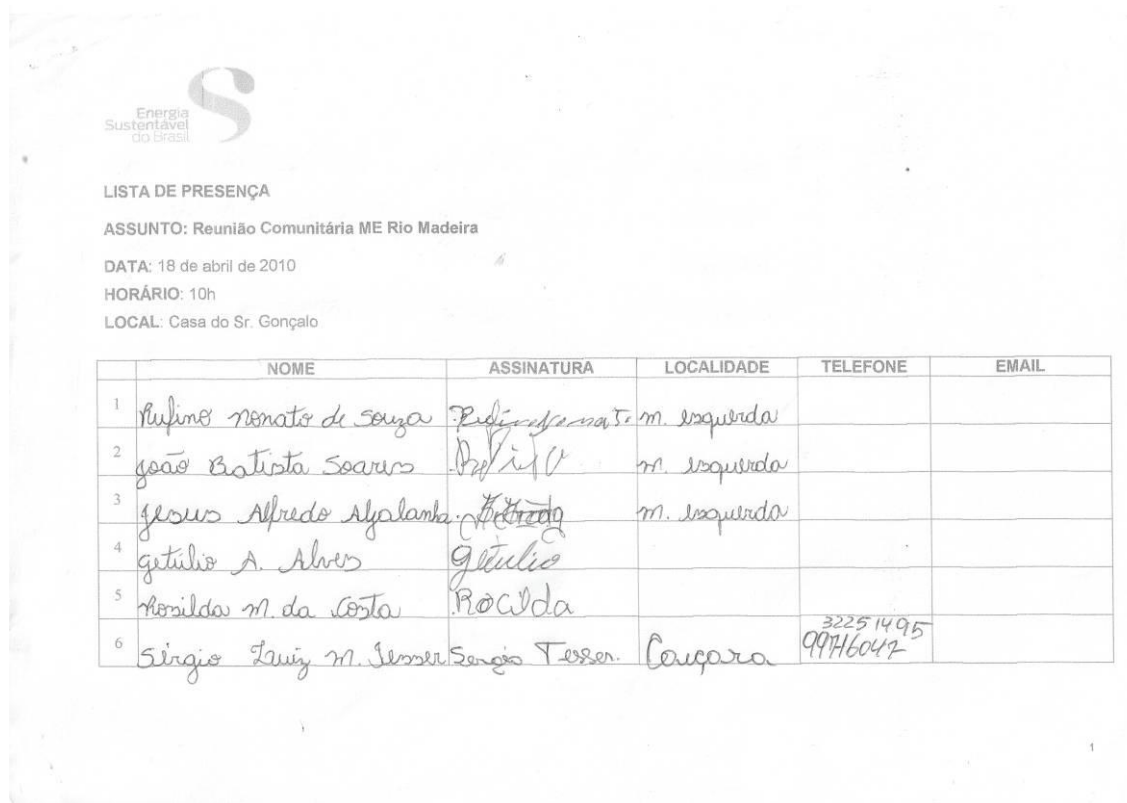 Energia
Sustentável
do Brasil
LISTA DE PRESENÇA
ASSUNTO: Reunião Comunitária ME Rio Madeira
DATA: 18 de abril de 2010
HORÁRIO: 10h
LOCAL: Casa do Sr. Gonçalo
NOME ASSINATURA LOCALIDADE TELEFONE EMAIL
1 Rufino nonato de Souza m. esquerda
2 João Batista Soares m. esquerda
3 Jesus Alfredo m. esquerda
4 getúlio A. Alves getulio
5 Rosilda m. da Costa Rocilda
32251495
6 Sérgio Luiz m. Tesser Sergio Tesser.
1